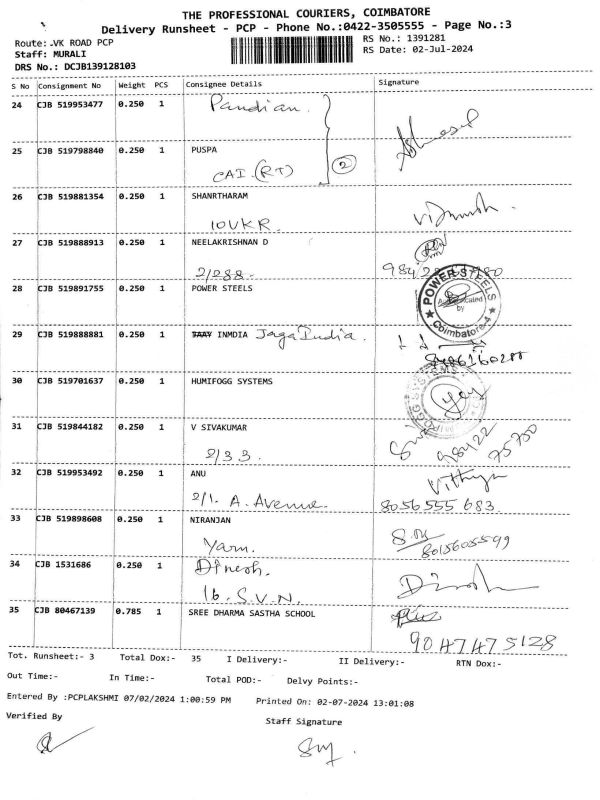 THE PROFESSIONAL COURIERS, COIMBATORE
Delivery Runsheet - PCP - Phone No.:0422-3505555 - Page No.:3
Route: .VK ROAD PCP
RS No.: 1391281
Staff: MURALI
RS Date: 02-Jul-2024
DRS No.: DCJB139128103
S No Consignment No Weight PCS Consignee Details Signature
24 CJB 519953477 0.250 1 Pandian.
25 CJB 519798840 0.250 1 PUSPA
CAI (RT) 2
26 CJB 519881354 0.250 1 SHANRTHARAM
10VKR.
27 CJB 519888913 0.250 1 NEELAKRISHNAN D
2/288.
28 CJB 519891755 0.250 1 POWER STEELS
POWER STEELS
by
Coimbatore-4
29 CJB 519888881 0.250 1 INMDIA Jaga India.
30 CJB 519701637 0.250 1 HUMIFOGG SYSTEMS
31 CJB 519844182 0.250 1 V SIVAKUMAR
2/33. 98422 75750
32 CJB 519953492 0.250 1 ANU Vithya
2/1. A. Avenue. 8056555 683.
33 CJB 519898608 0.250 1 NIRANJAN
Yarn. 8015605599
34 CJB 1531686 0.250 1 Dinesh. Dinesh
16. S.V.N.
35 CJB 80467139 0.785 1 SREE DHARMA SASTHA SCHOOL
9047475128
Tot. Runsheet:- 3 Total Dox:- 35 I Delivery:- II Delivery:- RTN Dox:-
Out Time:- In Time:- Total POD:- Delvy Points:-
Entered By :PCPLAKSHMI 07/02/2024 1:00:59 PM Printed On: 02-07-2024 13:01:08
Verified By Staff Signature